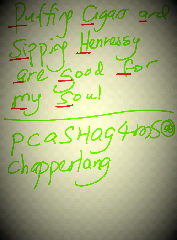 Puffing Cigars and
Sipping Hennessy
are Good for
my Soul
PCaSHag4mS@
chapperlang